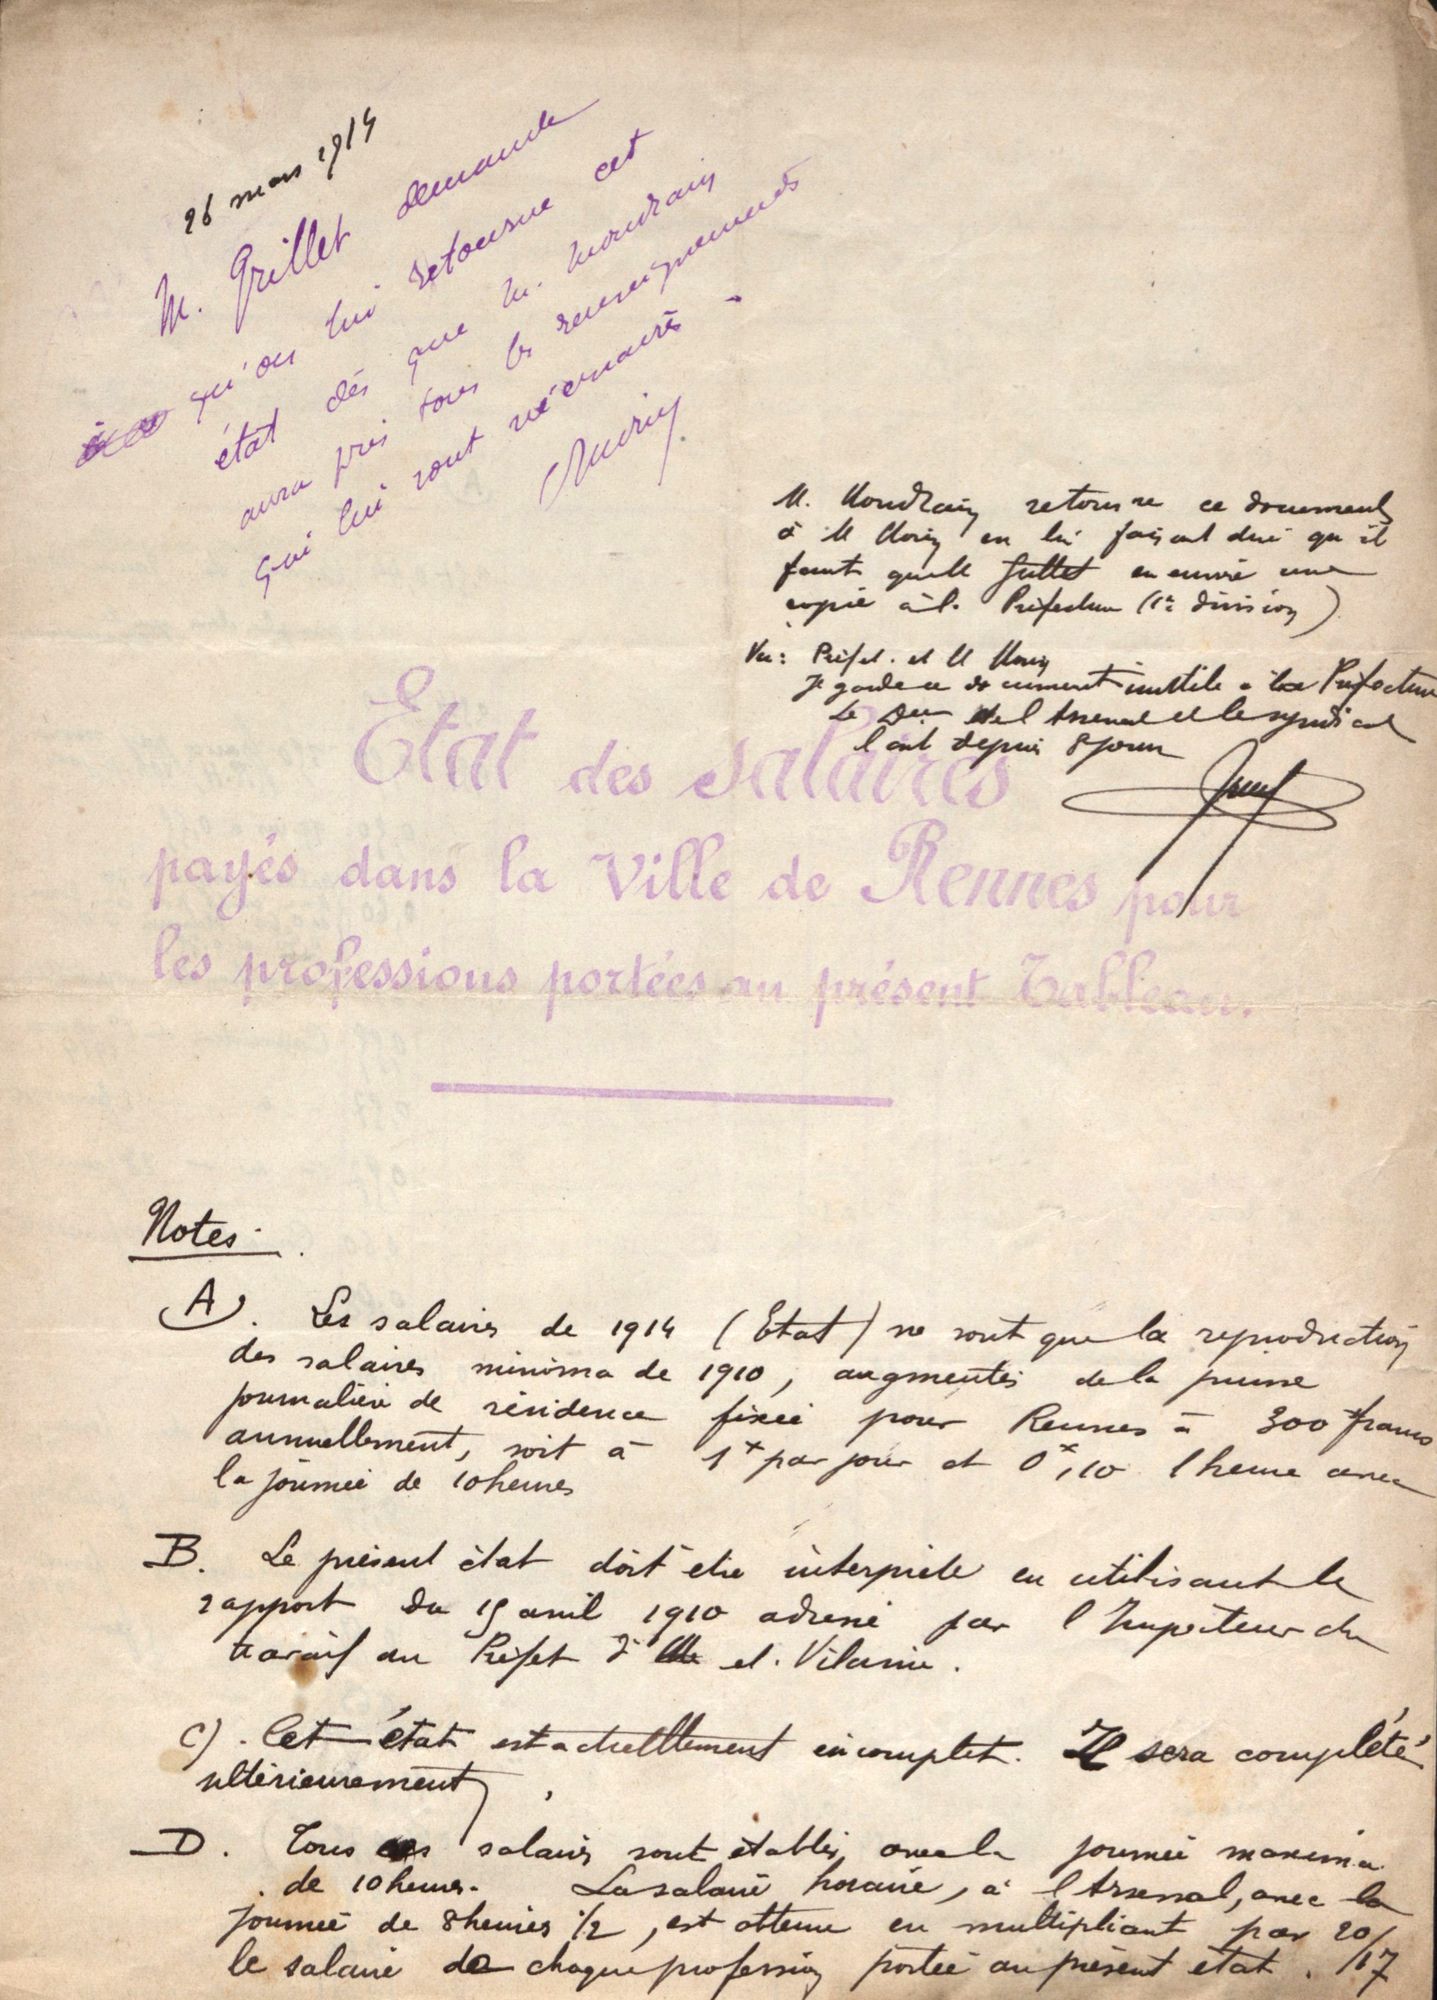 26 mars 1914
M. Grillet demande
qu'on lui retourne cet
état dès que M. Moudrain
aura pris tous les renseignements
qui lui sont nécessaires.
M. Moudrain retourne ce document
à M Morin en lui faisant dire qu'il
faut que M Grillet en envoie une
copie à la Préfecture (1re division)
Vu: Préfet. et M Morin
Je garde ce document inutile à la Préfecture
Le Deur de l'Arsenal et le syndicat
l'ont depuis 8 jours
Etat des Salaires
payés dans la Ville de Rennes pour
les professions portées au présent Tableau.
Notes.
A. Les salaires de 1914 (Etat) ne sont que la reproduction
des salaires minima de 1910, augmentés de la prime
journalière de résidence fixée pour Rennes à 300 francs
annuellement, soit à 1f par jour et 0f,10 l'heure avec
la journée de 10 heures
B. Le présent état doit être interprété en utilisant le
rapport du 15 avril 1910 adressé par l'Inspecteur du
travail au Préfet d'Ille et. Vilaine.
C). Cet état est actuelltement incomplet. Il sera complété
ultérieurement,
D. Tous ces salaires sont établis avec la journée maxima
de 10 heures. Le salaire horaire, à l'Arsenal, avec la
journée de 8 heures 1/2, est obtenu en multipliant par 20/17
le salaire de chaque profession portée au présent état.